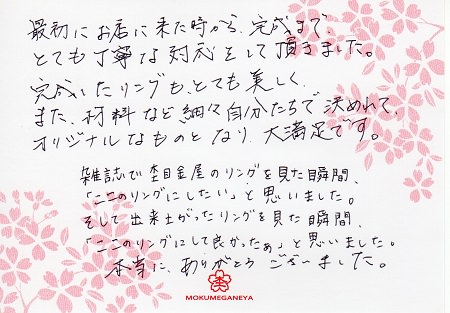 最初にお店に来た時から、完成まで、
とても丁寧な対応をして頂きました。
完成したリングも、とても美しく、
また、材料など細々自分たちで決めれて、
オリジナルなものとなり、大満足です。
雑誌で杢目金屋のリングを見た瞬間、
「ここのリングにしたい」と思いました。
そして出来上がったリングを見た瞬間、
「ここのリングにして良かったぁ」と思いました。
本当に、ありがとうございました。
MOKUMEGANEYA